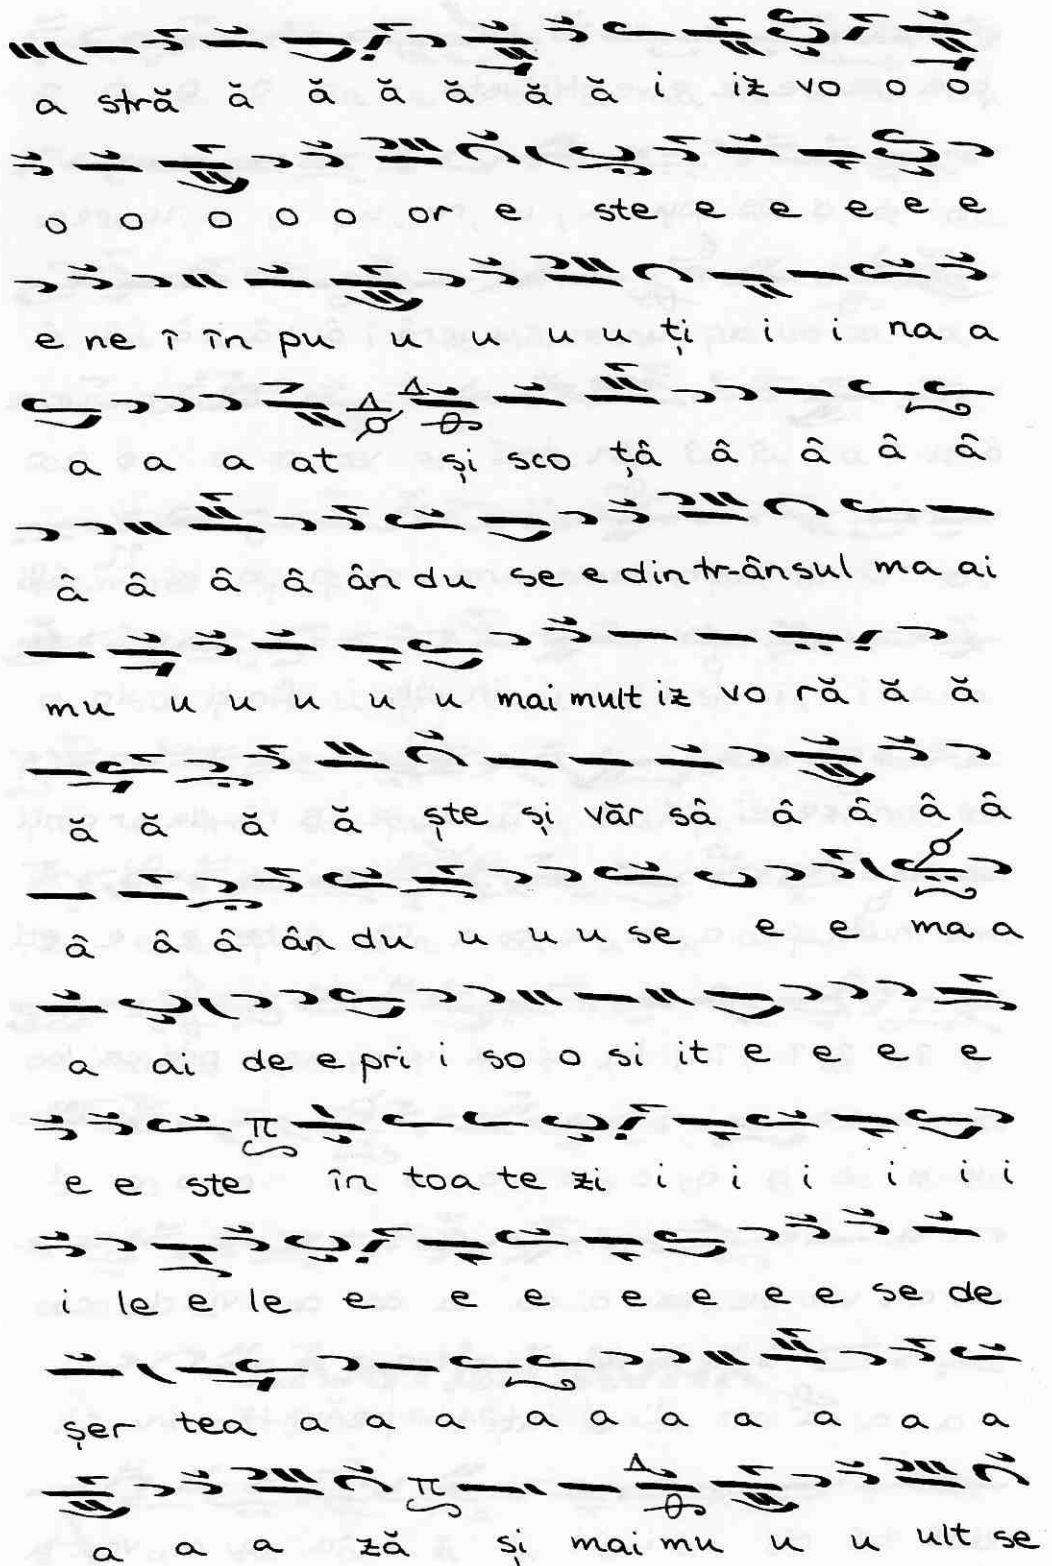 a stră ă ă ă ă ă ă i iz vo o o
o o o o o or e ste e e e e e
e ne î în pu u u u u ți i i na a
a a a at și sco țâ â â â â
â â â â ân du se e din tr-ânsul ma ai
mu u u u u u mai mult iz vo ră ă ă
ă ă ă ă ște și văr sâ â â â â
â â â ân du u u u se e e ma a
a ai de e pri i so o si it e e e e e
e e ste în toa te zi i i i i i i
i le e le e e e e e e e se de
șer tea a a a a a a a a a a
a a a ză și mai mu u u ult se